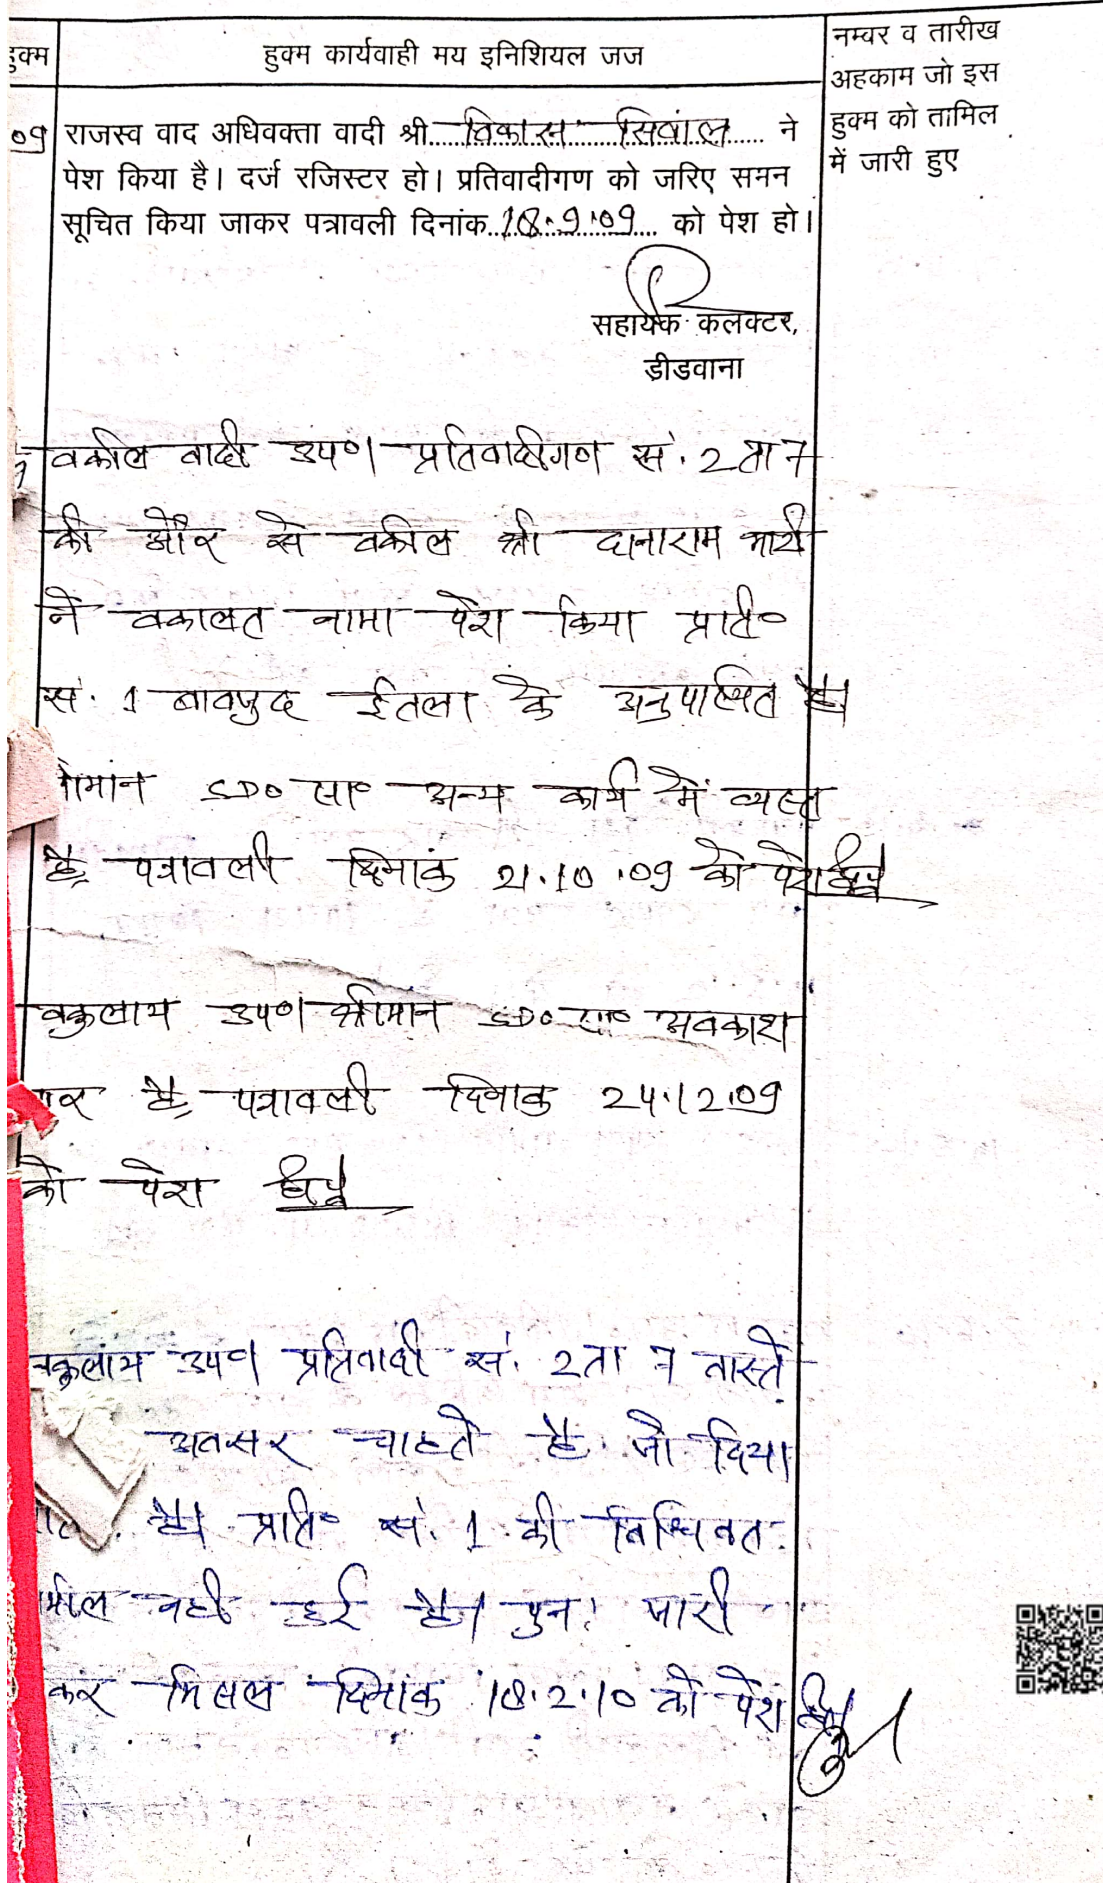 हुक्म
हुक्म कार्यवाही मय इनिशियल जज
नम्बर व तारीख
अहकाम जो इस
हुक्म को तामिल
में जारी हुए
09
राजस्व वाद अधिवक्ता वादी श्री विकास सिवाल ने
पेश किया है। दर्ज रजिस्टर हो। प्रतिवादीगण को जरिए समन
सूचित किया जाकर पत्रावली दिनांक 18.9.09 को पेश हो।
सहायक कलक्टर,
डीडवाना
वकील वादी उप०। प्रतिवादीगण सं. 2 ता 7
की और से वकील श्री दानाराम
ने वकालत नामा पेश किया प्रति०
सं. 1 बावजुद ईतला के अनुपस्थित है।
SDO सा० अन्य कार्य में व्यस्त
है, पत्रावली दिनांक 21.10.09 को पेश हो
वकुलाय उप०। श्रीमान SDO सा० अवकाश
पर है, पत्रावली दिनांक 24.12.09
को पेश हो
वकुलाय उप०। प्रतिवादी सं. 2 ता 7 वास्ते
अवसर चाहते है. जो दिया
है। प्रति० सं. 1 की
नही हुई है। पुन: जारी
कर मिसल दिनांक 18.2.10 को पेश हो